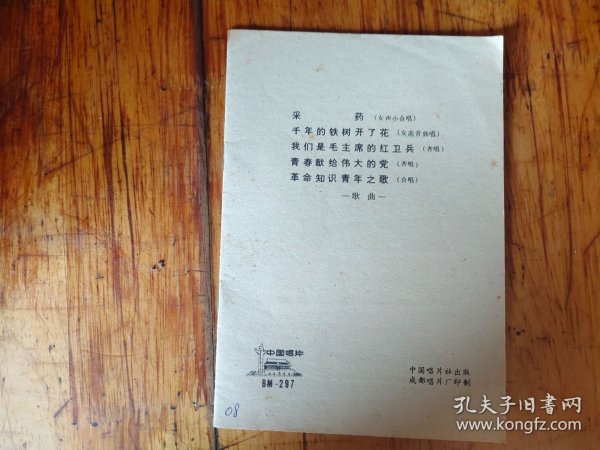 采药（女声小合唱）
千年的铁树开了花（女高音独唱）
我们是毛主席的红卫兵（齐唱）
青春献给伟大的党（齐唱）
革命知识青年之歌（合唱）
—歌曲—
中国唱片
BM-297
中国唱片社出版
成都唱片厂印制
08
孔夫子旧书网
www.kongfz.com